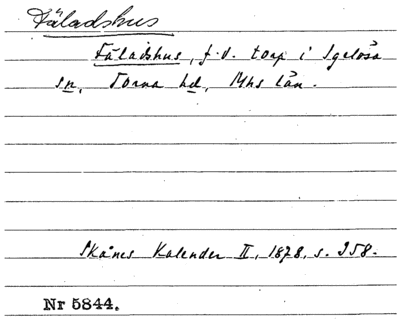 Fäladshus
Fäladshus, f.d. torp i Igelösa
sn, Torna hd, Mhs län.
Skånes Kalender II, 1878, s. 358.
Nr 5844.